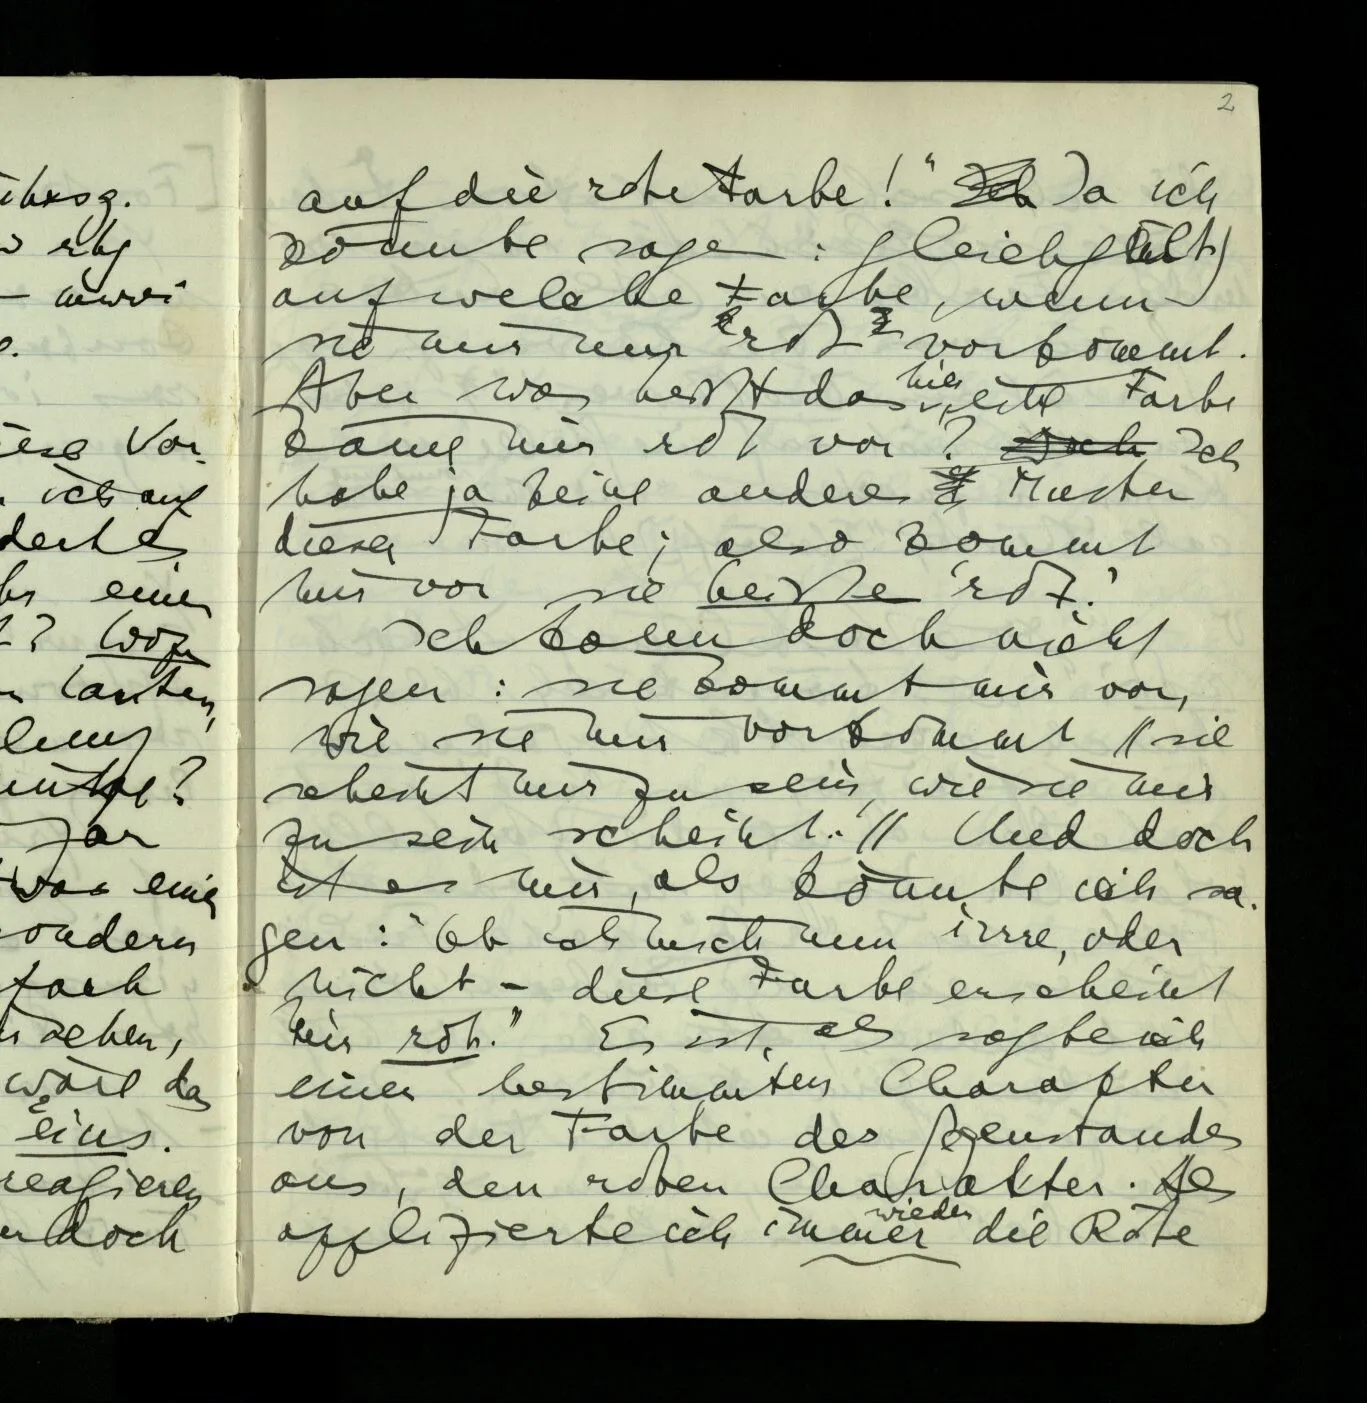 2
auf die rote Farbe!" Ja ich
könnte sagen: gleichgült)
auf welche Farbe, wenn
sie mir nur 'rot' vorkommt.
Aber was heißt das hier, eine Farbe
käme mir rot vor? Ich
habe ja keine anderen Muster
dieser Farbe; also kommt
mir vor sie heiße 'rot'.
Ich kann doch nicht
sagen: sie kommt mir vor,
wie sie mir vorkommt // sie
scheint mir zu sein, wie sie mir
zu sein scheint. // Und doch
ist es mir, als könnte ich sa-
gen: "Ob ich mich nun irre, oder
nicht – diese Farbe erscheint
mir rot." Es ist, als sagte ich
einen bestimmten Charakter
von der Farbe des Gegenstandes
aus, den roten Charakter. Als
applizierte ich immer wieder die Röte
rbxsg.
ese Vor-
ich auf
einen
? Wozu
lauten,
gar
sondern
sehen,
wäre das
eins.
reagieren
doch